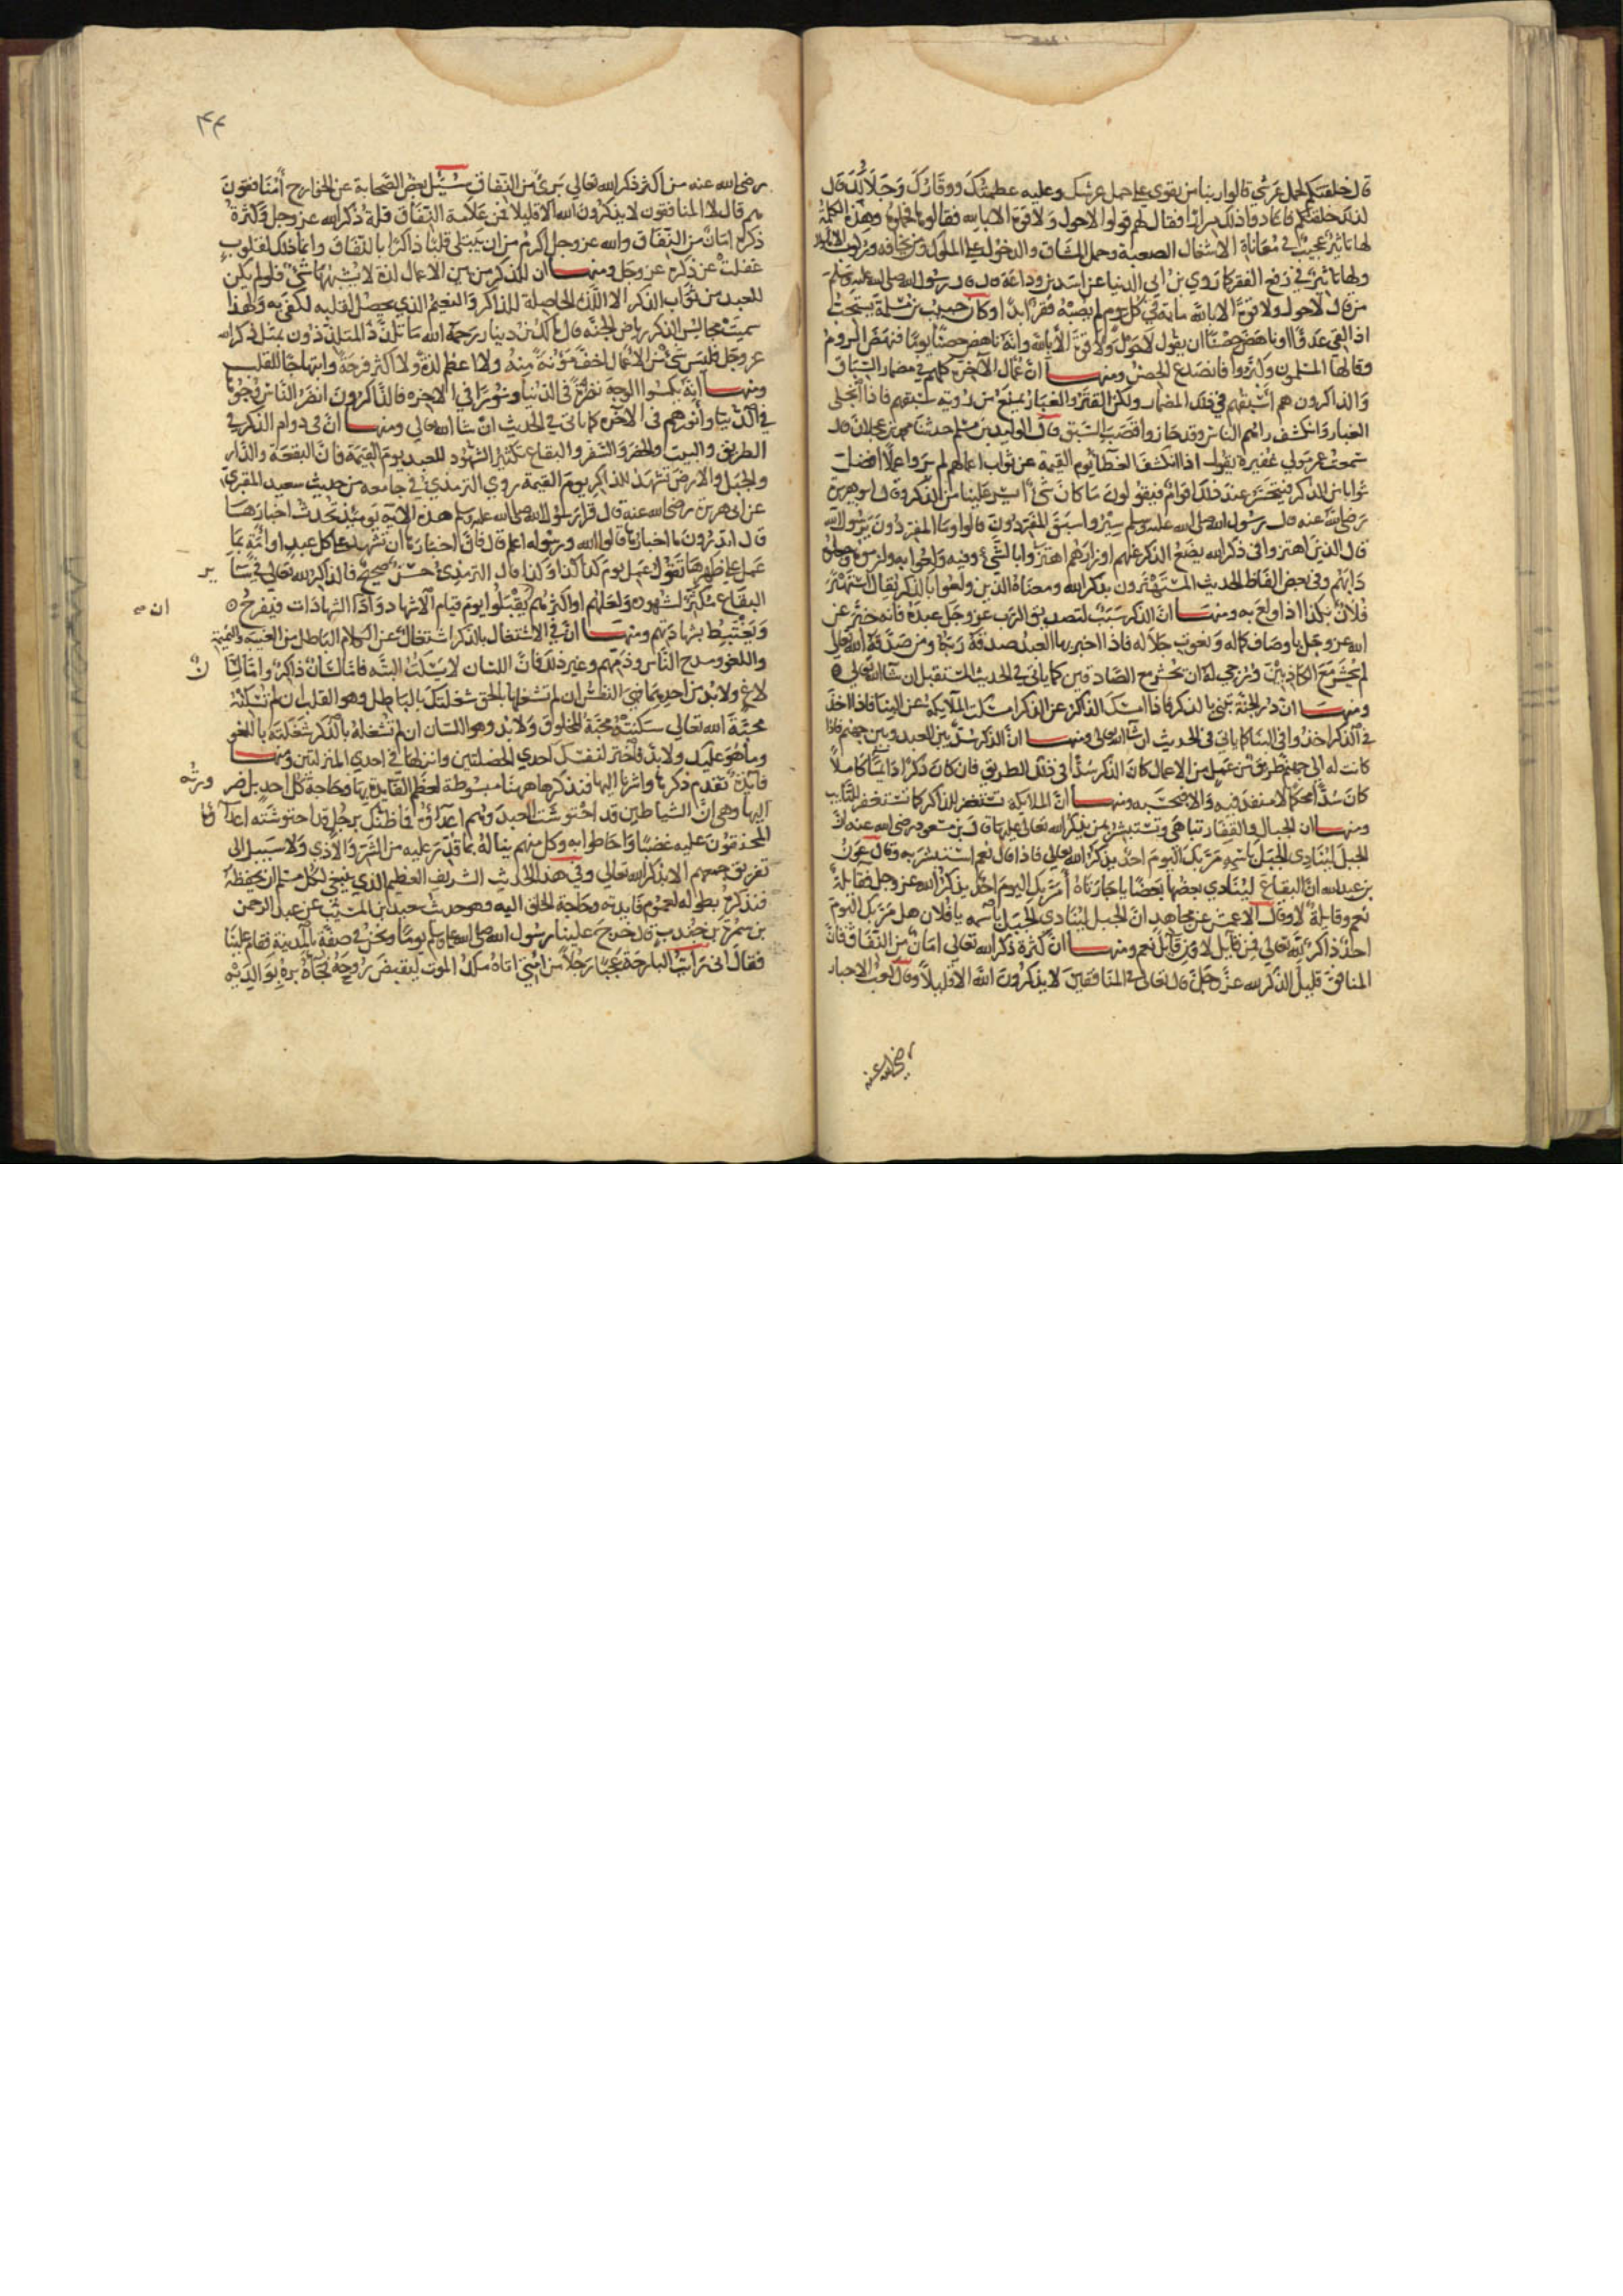 قال خلقتكم لحمل عرشي قالوا ربنا من يقوى على حمل عرشك وعليه عظمتك ووقارك وجلالك قال
لذلك خلقتكم فاعادوا ذلك مرارا فقال لهم قولوا لا حول ولا قوة الا بالله فقالوها فحملوه وهذه الكلمة
لها تاثير عجيب في معاناة الاشغال الصعبة وحمل المشاق والدخول على الملوك ومن يخاف وركوب الاهوال
ولها تاثير في دفع الفقر كما روي بن ابي الدنيا عن اسد بن وداعة قال قال رسول الله صلى الله عليه وسلم
من قال لا حول ولا قوة الا بالله مائة في كل يوم لم يصبه فقر ابدا وكان حبيب بن مسلمة يستحب
اذا لقي عدوا او ناهض حصنا ان يقول لا حول ولا قوة الا بالله وانه ناهض حصنا يوما فنهض الروم
وقالها المسلمون وكبروا فانصدع الحصن ومنها ان عمال الاخرة كلهم في مضمار السباق
والذاكرون هم اسبقهم في ذلك المضمار ولكن القتر والغبار يمنع من روية سبقهم فاذا انجلى
الغبار وانكشف راهم الناس وقد حازوا قصب السبق قال الوليد بن مسلم حدثنا محمد بن عجلان قال
سمعت عمر مولي غفيرة يقول اذا انكشف الغطا يوم القيمة عن ثواب اعمالهم لم يروا عملا افضل
ثوابا من الذكر فيتحسر عند ذلك اقوام فيقولون ما كان شي ايسر علينا من الذكر وقال ابو هريرة
رضي الله عنه قال رسول الله صلى الله عليه وسلم سيروا سبق المفردون قالوا وما المفردون يرسول الله
قال الذين اهتزوا في ذكر الله يضع الذكر عنهم اوزارهم اهتزوا بالشي وفيه واغروا به ولزموه وجعلوه
دابهم وفي بعض الفاظ الحديث المستهترون بذكر الله ومعناه الذين ولعوا بالذكر يقال استهتر
فلان بكذا اذا ولع به ومنها ان الذكر سبب لتصديق الرب عز وجل عبده فانه خبر عن
الله عز وجل باوصاف كماله ونعوت جلاله فاذا اخبر بها العبد صدقه ربه ومن صدقه الله تعالى
لم يحشر مع الكاذبين ورجي له ان يحشر مع الصادقين كما ياتي في الحديث المستقبل ان شا الله تعالى
ومنها ان دور الجنة تبنى بالذكر فاذا امسك الذاكر عن الذكر امسكت الملايكة عن البنا فاذا اخذ
في الذكر اخذوا في البنا كما ياتي في الحديث ان شا الله تعالى ومنها ان الذكر سد بين العبد وبين جهنم فاذا
كانت له الى جهنم طريق من عمل من الاعمال كان الذكر سدا في ذلك الطريق فان كان ذكرا دايما كاملا
كان سدا محكما لا منفذ فيه والا فبحسبه ومنها ان الملايكة تستغفر للذاكر كما تستغفر للتايب
ومنها ان الجبال والقفار تباهى وتستبشر بمن يذكر الله تعالى عليها قال بن مسعود رضي الله عنه ان
الجبل لينادي الجبل باسمه مر بك اليوم احد يذكر الله تعالى فاذا قال نعم استبشر به وقال عون
بن عبد الله ان البقاع لينادي بعضها بعضا يا جارتاه أمر بك اليوم احد يذكر الله عز وجل فقايلة
نعم وقايلة لا وقال الاعمش عن مجاهد ان الجبل لينادي الجبل باسمه يا فلان هل مر بك اليوم
احد ذاكر لله تعالى فمن قايل لا ومن قايل نعم ومنها ان كثرة ذكر الله تعالى امان من النفاق فان
المنافق قليل الذكر لله عز وجل قال تعالى في المنافقين لا يذكرون الله الا قليلا وقال كعب الاحبار
رضي الله عنه
٤٤
رضي الله عنه من اكثر ذكر الله تعالى بري من النفاق سئل بعض الصحابة عن الخوارج أمنافقون
هم قال لا المنافقون لا يذكرون الله الا قليلا فمن علامة النفاق قلة ذكر الله عز وجل وكثرة
ذكره امان من النفاق والله عز وجل اكرم من ان يبتلي قلبا ذاكرا بالنفاق وانما ذلك لقلوب
غفلت عن ذكره عز وجل ومنها ان للذكر من بين الاعمال لذة لا يشبهها شي فلو لم يكن
للعبد من ثواب الذكر الا اللذة الحاصلة للذاكر والنعيم الذي يحصل لقلبه لكفى به ولهذا
سميت مجالس الذكر رياض الجنة قال مالك بن دينار رحمة الله ما تلذذ المتلذذون بمثل ذكر الله
عز وجل فليس شي من الاعمال اخف مؤنة منه ولا اعظم لذة ولا اكثر فرحة وابتهاجا للقلب
ومنها انه يكسوا الوجه نضرة في الدنيا ونورا في الاخره فالذاكرون انضر الناس وجوها
في الدنيا وانورهم في الاخره كما ياتى في الحديث ان شا الله تعالي ومنها ان في دوام الذكر في
الطريق والبيت والحضر والسفر والبقاع تكثير الشهود للعبد يوم القيمة فان البقعة والدار
والجبل والارض تشهد للذاكر يوم القيمة روي الترمذي في جامعه من حديث سعيد المقبري
عن ابي هريرة رضي الله عنه قال قرا رسول الله صلى الله عليه وسلم هذه الاية يومئذ تحدث اخبارها
قال اتدرون ما اخبارها قالوا الله ورسوله اعلم قال فان اخبارها ان تشهد على كل عبد او امة بما
عمل على ظهرها تقول عمل يوم كذا كذا وكذا قال الترمذي حسن صحيح فالذاكر لله تعالي في سا
ير
البقاع مكثر لشهوده ولعلهم او اكثرهم يقبلوا يوم قيام الاشهاد واذا الشهادات فيفرح
ويغتبط بشهادتهم ومنها ان في الاشتغال بالذكر اشتغال عن الكلام الباطل من الغيبة والنميمة
واللغو ومدح الناس وذمهم وغير ذلك فان اللسان لا يسكت البتة فاما لسان ذاكر واما لسا
ن
لاغ ولا بد من احدهما فهي النفس ان لم تشغلها بالحق شغلتك بالباطل وهو القلب ان لم تسكنه
محبة الله تعالي سكنته محبة المخلوق ولا بد وهو اللسان ان لم تشغله بالذكر شغلك باللغو
وما هو عليك ولا بد فاختر لنفسك احدي الخصلتين وانزلها في احدي المنزلتين ومنها
فايدة تقدم ذكرها واشرنا اليها فنذكرها ههنا مبسوطة لعظم الفايدة بها وحاجة كل احد بل ضر
ورته
اليها وهي ان الشياطين قد احتوشت العبد وهم اعداؤه فما ظنك برجل قد احتوشته اعدا
ؤه
المحدقون عليه غضبا واحاطوا به وكل منهم يناله بما قدر عليه من الشر والاذي ولا سبيل الى
تفريق جمعهم الا بذكر الله تعالي وفي هذا الحديث الشريف العظيم الذي ينبغي لكل مسلم ان يحفظه
فنذكره بطوله لعموم فايدته وحاجة الخلق اليه وهو حديث سعيد بن المسيب عن عبد الرحمن
بن سمرة بن جندب قال خرج علينا رسول الله صلى الله عليه وسلم يوما ونحن في صفة بالمدينة فقام علينا
فقال اني رايت البارحة عجبا رجلا من امتي اتاه ملك الموت ليقبض روحه فجاه بره بوالديه